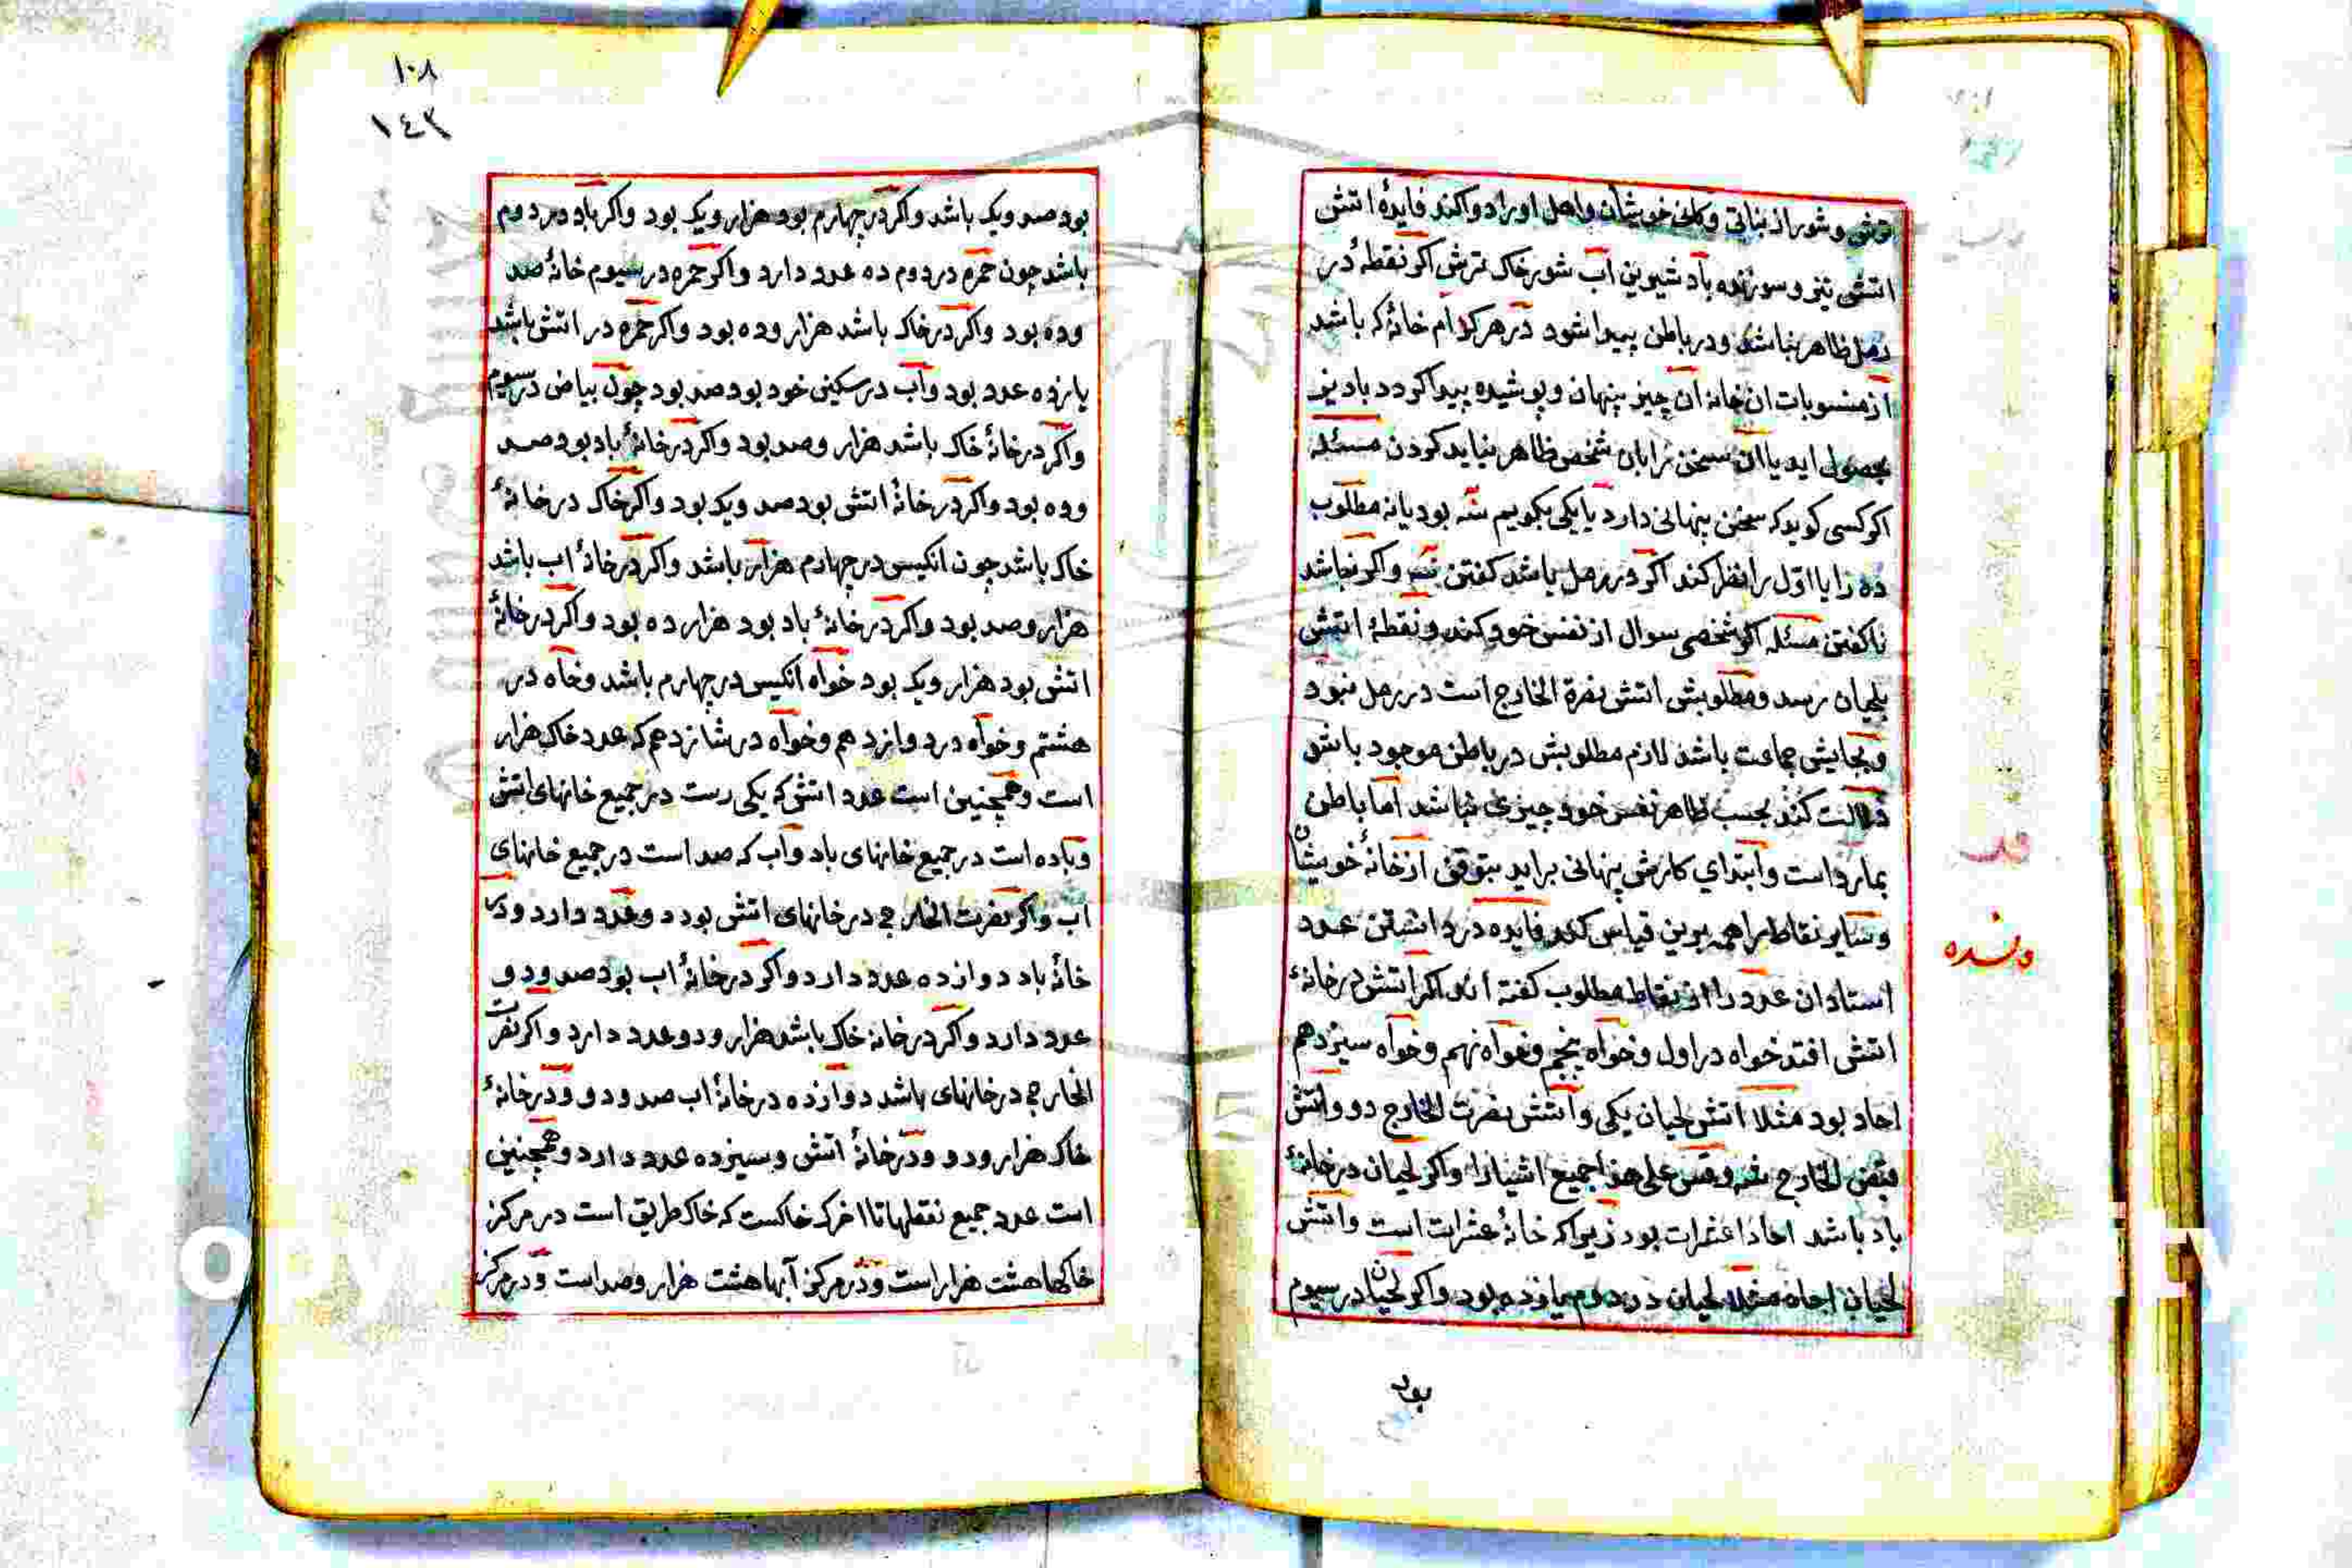 ترشی و شور از بناتی و کلی خویشان و اهل او را دوا کند فایدهٔ اتش
اتشی تیز و سوزنده باد شیرین اب شور خاک ترش اکر نقطهٔ در
رمل ظاهر نباشد و در باطن پیدا شود در هر کدام خانهٔ که باشد
از منسوبات ان خانه ان چیز پنهان و پوشیده پیدا کردد باد نیز
بحصول اید یا ان سخن را بان شخص ظاهر نباید کردن مسئله
اکر کسی کوید که سخن پنهانی دارد یا یکی بکویم به بود یا نه مطلوب
ده زایا اوّل را نظر کند اکر در رمل باشد کفتن به و اکر نباشد
ناکفتن مسئله اکر شخصی سوال از نفس خود کند و نقطهٔ اتش
بلحیان رسد و مطلوبش اتش نصرة الخارج است در رمل نبود
و بجایش جماعت باشد لازم مطلوبش در باطن موجود باشد
دلالت کند بحسب ظاهر نفس خود چیزی نباشد اما باطن
بمارد است و ابتدای کارش پنهانی براید بتوقی از خانهٔ خویشان
و سایر نقاط را همه برین قیاس کند فایده در دانشتن عدد
استادان عدد را از نقاط مطلوب کفته اند اکر اتش در خانهٔ
اتش افتد خواه در اول و خواه پنجم و خواه نهم و خواه سیزدهم
احاد بود مثلا اتش لحیان یکی و اتش نصرت الخارج دو و اتش
قبض الخارج سه و قس علی هذا جمیع اشیارا و اکر لحیان در خانهٔ
باد باشد احاد اعشرات بود زیرا که خانهٔ عشرات است و اتش
لحیان احاد مثلا لحیان در دوم یازده بود و اکر لحیان در سیوم
بود
۱۰۸
۱٤۳
بود صد و یک باشد و اکر در چهارم بود هزار و یک بود و اکر باد در دوم
باشد چون حمره در دوم ده عدد دارد و اکر حمره در سیوم خانهٔ صد
و ده بود و اکر در خاک باشد هزار و ده بود و اکر حمره در اتش باشد
یازده عدد بود و اب در سکینی خود بود صد بود چون بیاض در سیوم
و اکر در خانهٔ خاک باشد هزار و صد بود و اکر در خانهٔ باد بود صد
و ده بود و اکر در خانهٔ اتش بود صد و یک بود و اکر خاک در خانهٔ
خاک باشد چون انکیس در چهارم هزار باشد و اکر در خانهٔ اب باشد
هزار و صد بود و اکر در خانهٔ باد بود هزار ده بود و اکر در خانهٔ
اتش بود هزار و یک بود خواه انکیس در چهارم باشد و خاه در
هشتم و خواه در دوازدهم و خواه در شانزدهم که عدد خاک هزار
است و همچنین است عدد اتش که یکی رست در جمیع خانهای اتش
و باده است در جمیع خانهای باد و اب که صد است در جمیع خانهای
اب و اکر نصرت الخارج در خانهای اتش بود دو عدد دارد و در
خانهٔ باد دوازده عدد دارد و اکر در خانهٔ اب بود صد و دو
عدد دارد و اکر در خانه خاک باشد هزار و دو عدد دارد و اکر نصرت
الخارج در خانهای باشد دوازده در خانهٔ اب صد و دو و در خانهٔ
خاک هزار و دو و در خانهٔ اتش و سیزده عدد دارد و همچنین
است عدد جمیع نقطها تا اخر که خاکست که خاک طریق است در مرکز
خاکها هشت هزار است و در مرکز آبها هشت هزار و صد است و در مرکز